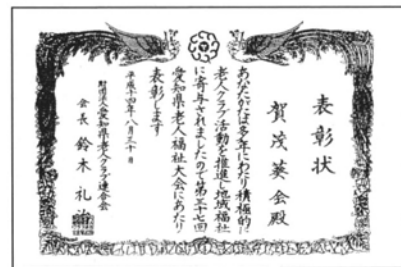 表彰状
賀茂葵会殿
あなたがたは多年にわたり積極的に
老人クラブ活動を推進し地域福祉
に寄与されましたので第三十七回
愛知県老人福祉大会にあたり
表彰します
平成十四年八月三十日
財団法人愛知県老人クラブ連合会
会長 鈴木礼治